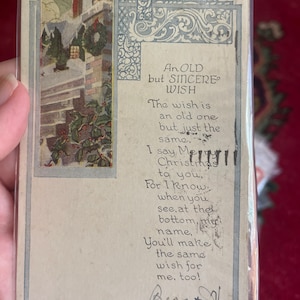 An OLD
but SINCERE
WISH
The wish is
an old one
but just the
same.
I say
Christmas
to you,
For I know,
when you
see, at the
bottom, my
name,
You'll make
the same
wish for
me, too!